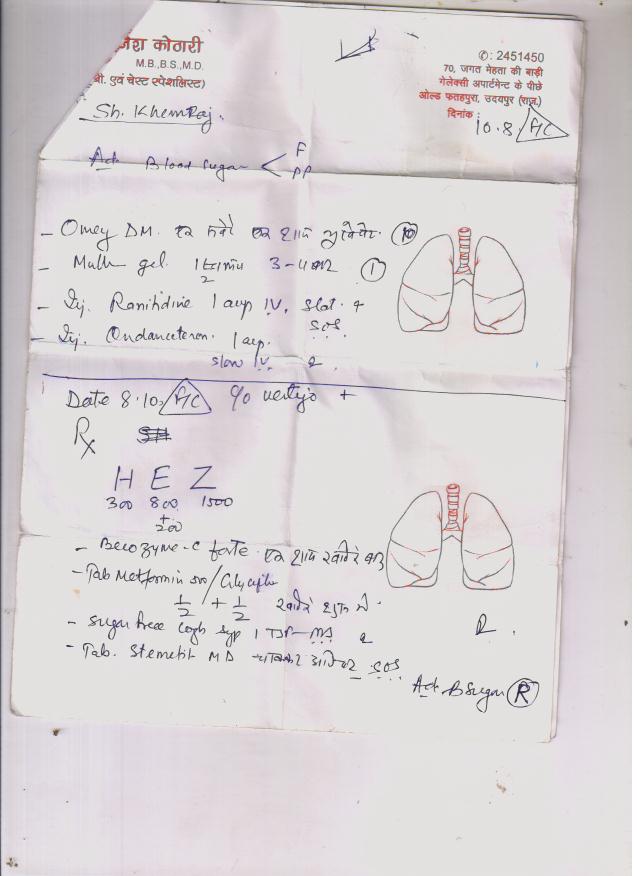 जेश कोठारी
M.B.,B.S.,M.D.
बी. एवं चेस्ट स्पेशलिस्ट)
✆: 2451450
70, जगत मेहता की बाड़ी
गेलेक्सी अपार्टमेन्ट के पीछे
ओल्ड फतहपुरा, उदयपुर (राज.)
दिनांक :
10.8 A/C
Sh. Khemraj.
Ad. Blood sugar < F PP
- Omey DM. एक सवेरे एक शाम 10
- Multi gel. 1 2 3-4 बार 1
- Inj. Ranitidine 1 amp IV. stat. +
SOS
- Inj. Ondanceteron. 1 amp.
slow IV.
Date 8.10, A/C C/o vertigo +
Rx
H E Z
300 800 1500
+
200
- Becozyme-C forte एक शाम खाने के बाद
- Tab Metformin 500/Glyciphe
1/2 + 1/2 खाने
- Sugar free Cogh Syp 1 TSP
- Tab. Stemetil MD SOS
Ad. B Sugar R